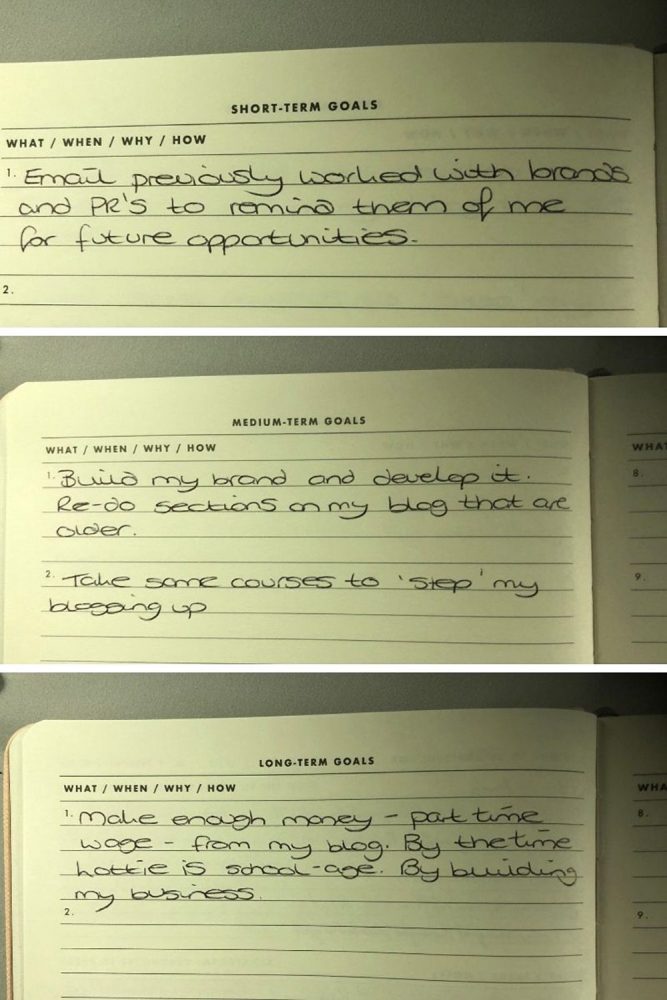 SHORT-TERM GOALS
WHAT / WHEN / WHY / HOW
1. Email previously worked with brands
and PR'S to remind them of me
for future opportunities.
2.
MEDIUM-TERM GOALS
WHAT / WHEN / WHY / HOW
1. Build my brand and develop it.
Re-do sections on my blog that are
older.
2. Take some courses to 'step' my
blogging up
WHA
8.
9.
LONG-TERM GOALS
WHAT / WHEN / WHY / HOW
1. Make enough money - part time
wage - from my blog. By the time
Lottie is school-age. By building
my business.
2.
WHA
8.
9.